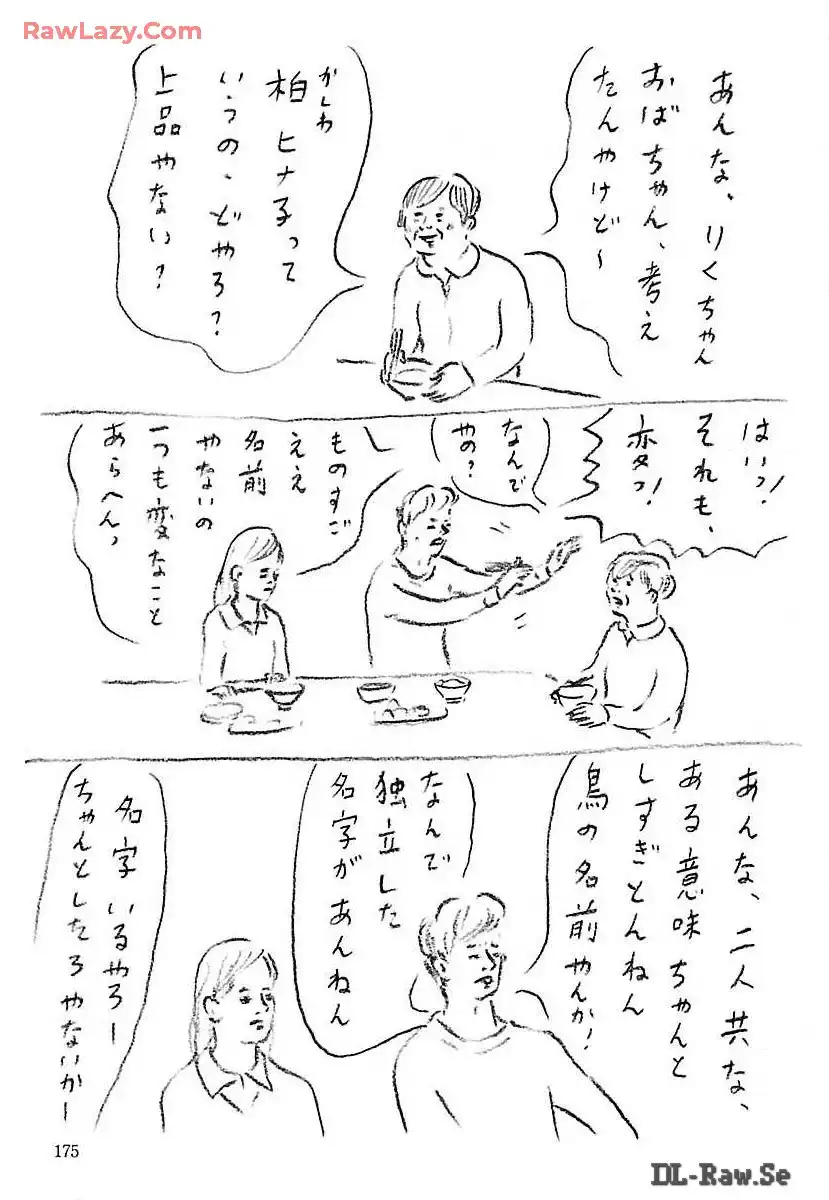 RawLazy.Com
あんな、りくちゃん
おばちゃん、考え
たんやけど〜
かしわ
柏ヒナ子って
いうの、どやろ?
上品やない?
はいっ!
それも、
変っ!
なんで
やの?
ものすご
ええ
名前
やないの
一つも変なこと
あらへんっ
あんな、二人共な、
ある意味ちゃんと
しすぎとんねん
鳥の名前やんか!
なんで
独立した
名字があんねん
名字いるやろー
ちゃんとしたろやないかー
175
DL-Raw.Se